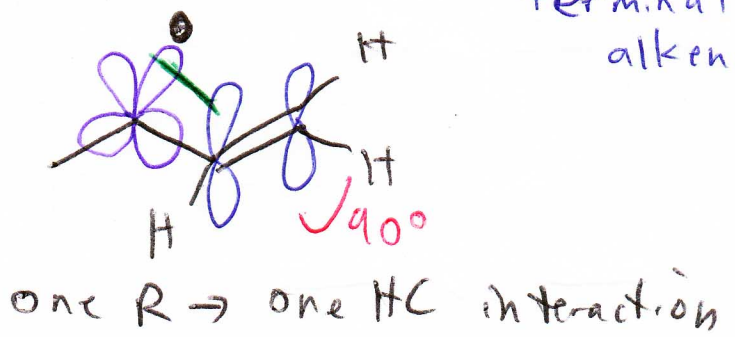 Terminal
alken
H
H
H
90°
one R → one HC interaction